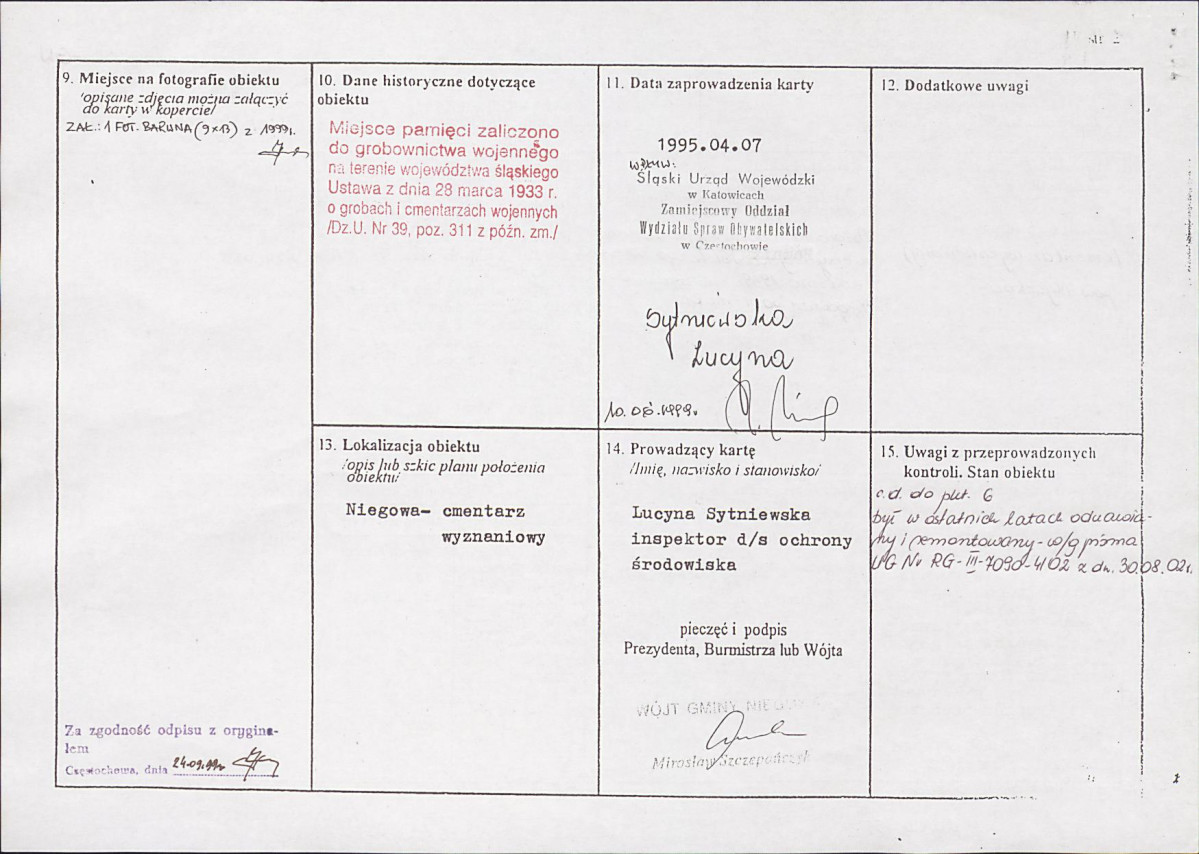 9. Miejsce na fotografie obiektu
/opisane zdjęcia można załączyć
do karty w kopercie/
ZAŁ.: 1 FOT. BARWNA (9x13) z 1999r.
Za zgodność odpisu z orygina-
lem
Częstochowa, dnia 24.09.99r
10. Dane historyczne dotyczące
obiektu
Miejsce pamięci zaliczono
do grobownictwa wojennego
na terenie województwa śląskiego
Ustawa z dnia 28 marca 1933 r.
o grobach i cmentarzach wojennych
/Dz.U. Nr 39, poz. 311 z późn. zm./
11. Data zaprowadzenia karty
1995.04.07
Śląski Urząd Wojewódzki
w Katowicach
Zamiejscowy Oddział
Wydziału Spraw Obywatelskich
w Częstochowie
Sytniewska
Lucyna
10.08.1999.
12. Dodatkowe uwagi
13. Lokalizacja obiektu
/opis lub szkic planu położenia
obiektu/
Niegowa- cmentarz
wyznaniowy
14. Prowadzący kartę
/Imię, nazwisko i stanowisko/
Lucyna Sytniewska
inspektor d/s ochrony
środowiska
pieczęć i podpis
Prezydenta, Burmistrza lub Wójta
WÓJT GMINY
Mirosław Szczepańczyk
15. Uwagi z przeprowadzonych
kontroli. Stan obiektu
c.d. do pkt. 6
był w ostatnich latach odnawia-
ny i remontowany - w/g pisma
UG Nr RG-III-7090-4/02 z dn. 30.08.02r.